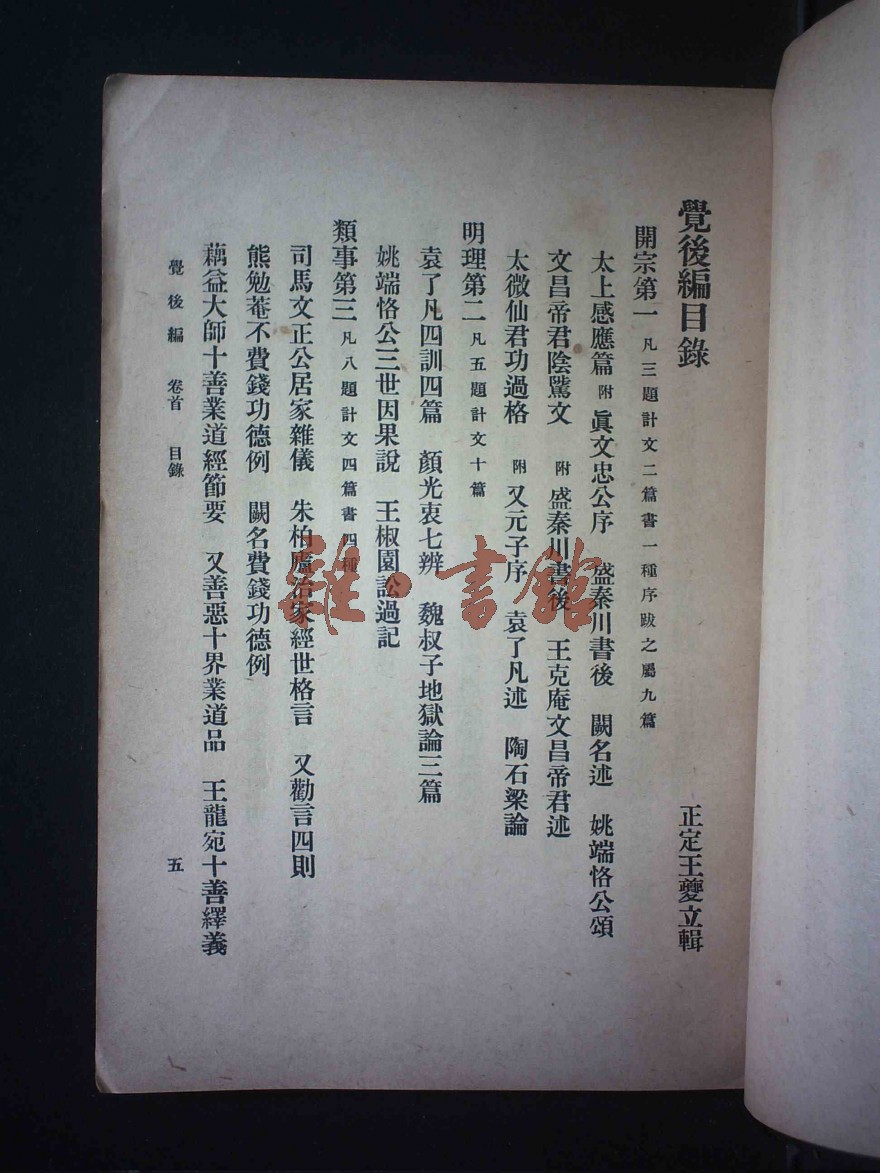 覺後編目錄　正定王夑立輯
開宗第一　凡三題計文二篇書一種序跋之屬九篇
太上感應篇　附　眞文忠公序　盛秦川書後　闕名述　姚端恪公頌
文昌帝君陰騭文　附　盛秦川書後　王克庵文昌帝君述
太微仙君功過格　附　又元子序　袁了凡述　陶石梁論
明理第二　凡五題計文十篇
袁了凡四訓四篇　顏光衷七辨　魏叔子地獄論三篇
姚端恪公三世因果說　王椒園訟過記
類事第三　凡八題計文四篇書四種
司馬文正公居家雜儀　朱柏廬治家經世格言　又勸言四則
熊勉菴不費錢功德例　闕名費錢功德例
蕅益大師十善業道經節要　又善惡十界業道品　王龍宛十善繹義
覺後編　卷首　目錄　五
雜·書館